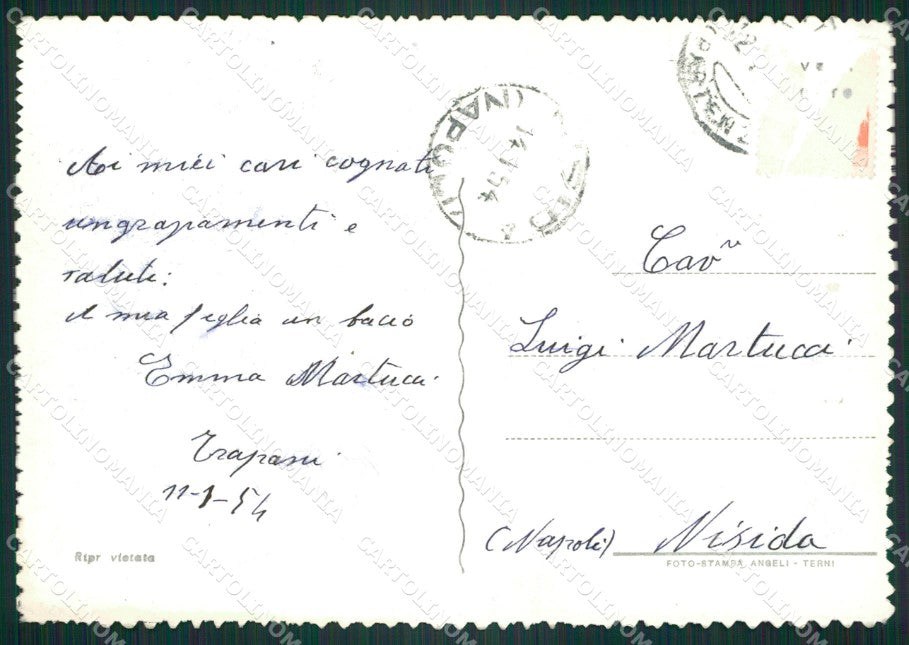 Ai miei cari cognati
ringraziamenti e
saluti:
A mia figlia un bacio
Emma Martucci
Trapani
11-1-54
Ripr vietata
(NAPOLI)
14.1.54
TRAPANI
Cav^re
Luigi Martucci
(Napoli) Nisida
FOTO-STAMPA ANGELI - TERNI
CARTOLINOMANIA